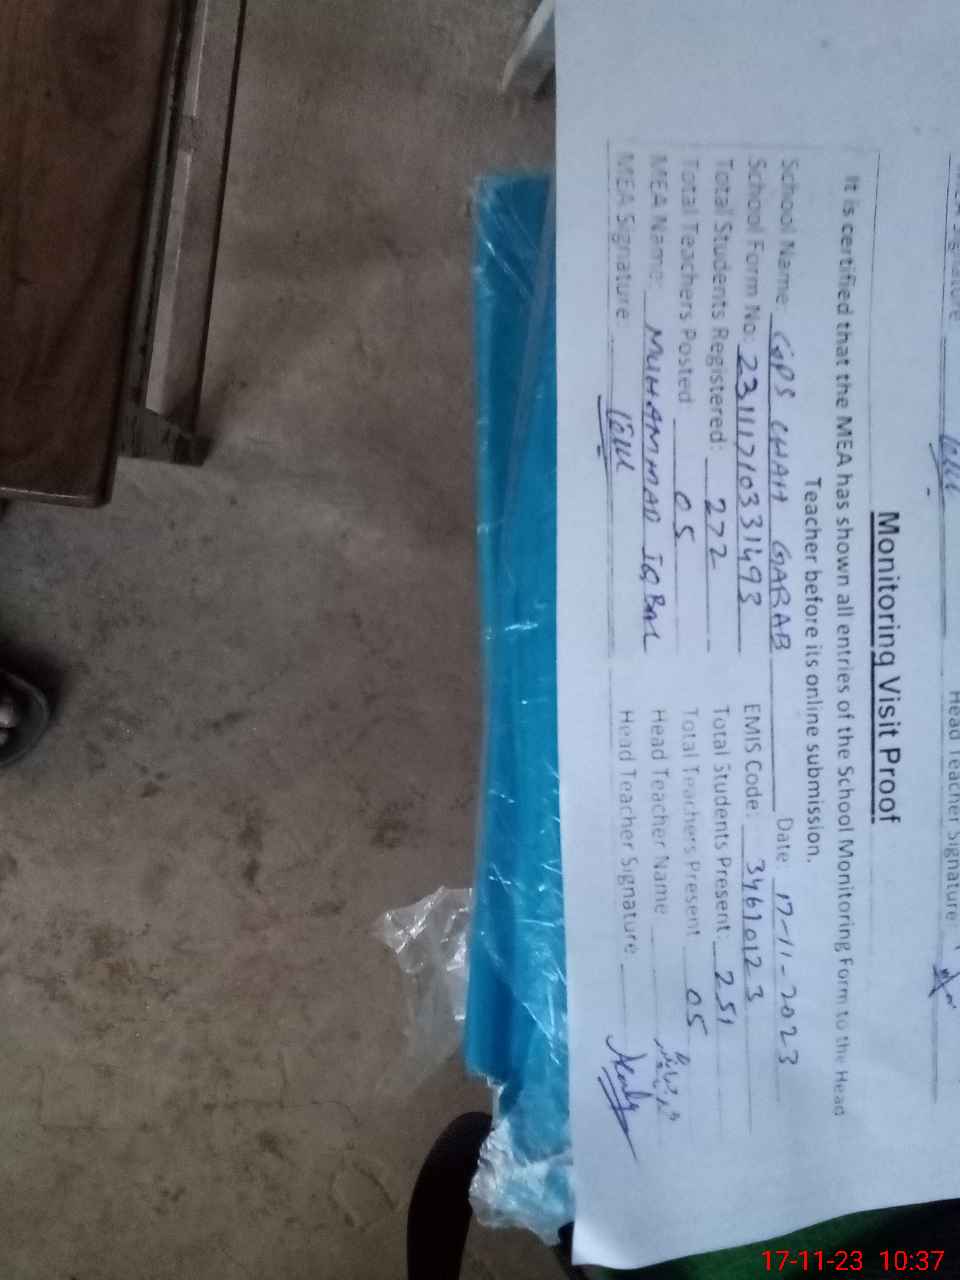 Head Teacher Signature
Monitoring Visit Proof
It is certified that the MEA has shown all entries of the School Monitoring Form to the Head
Teacher before its online submission.
School Name: GPS CHAH GARAB Date 17-11-2023
School Form No: 23111710331493 EMIS Code: 34610123
Total Students Registered: 272 Total Students Present: 251
Total Teachers Posted 05 Total Teachers Present 05
MEA Name: MUHAMMAD IQBAL Head Teacher Name
MEA Signature: Head Teacher Signature
17-11-23 10:37